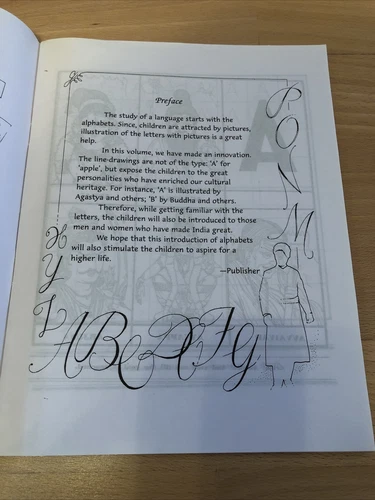 Preface
The study of a language starts with the
alphabets. Since, children are attracted by pictures,
illustration of the letters with pictures is a great
help.
In this volume, we have made an innovation.
The line-drawings are not of the type: 'A' for
'apple', but expose the children to the great
personalities who have enriched our cultural
heritage. For instance, 'A' is illustrated by
Agastya and others; 'B' by Buddha and others.
Therefore, while getting familiar with the
letters, the children will also be introduced to those
men and women who have made India great.
We hope that this introduction of alphabets
will also stimulate the children to aspire for a
higher life.
—Publisher
P
O
N
M
A B C D E F G